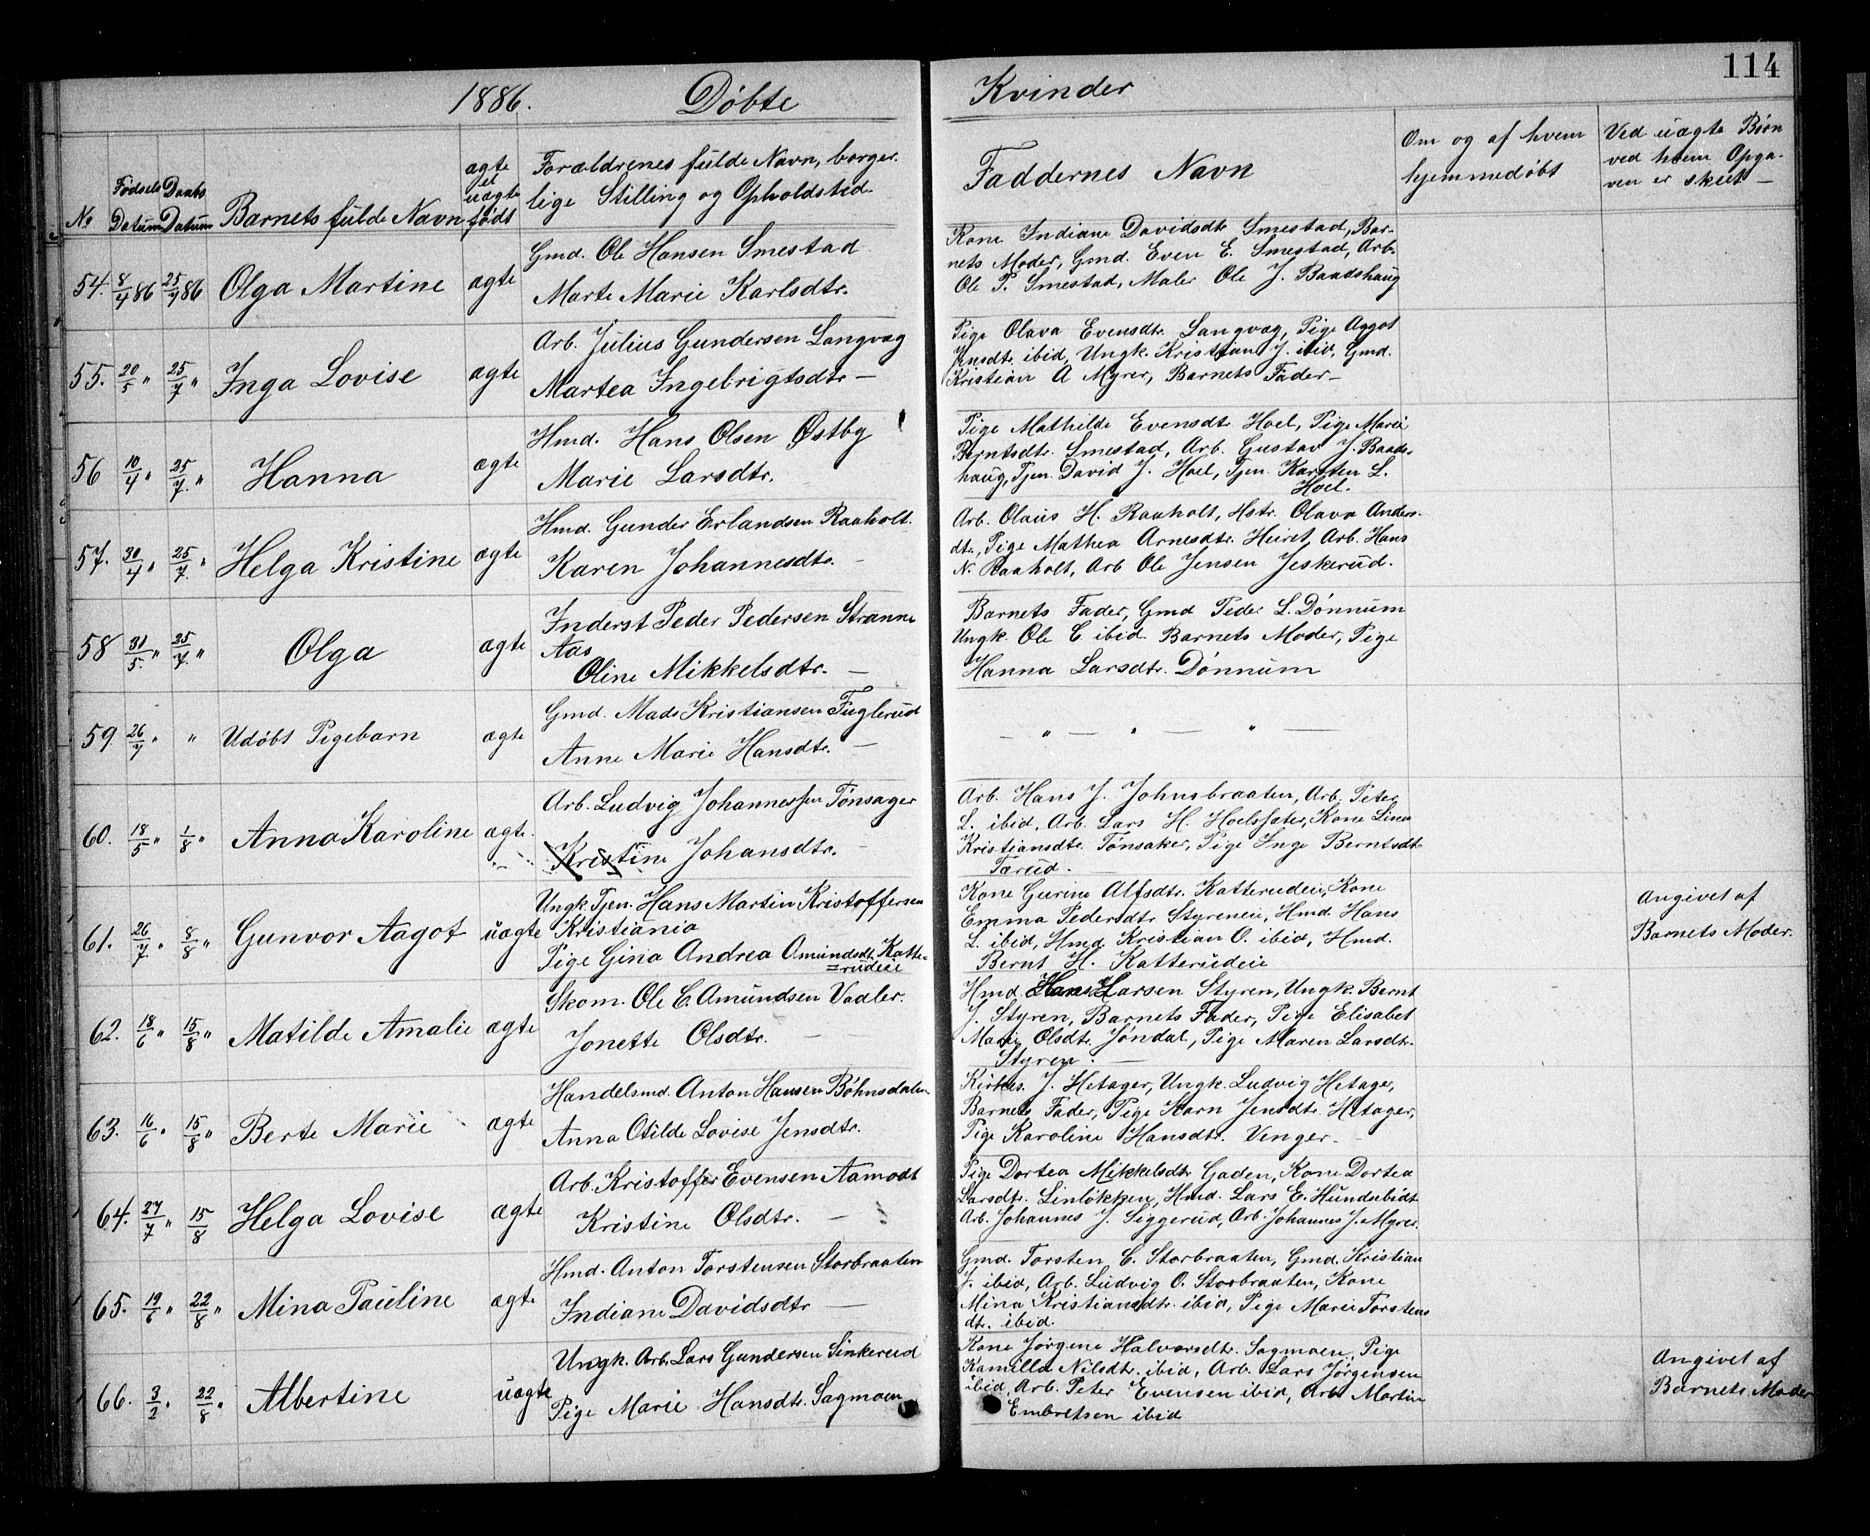 1886. Døbte Kvinder 114
No Fødsels Datum Daabs Datum Barnets fulde Navn ægte el uægte født Forældrenes fulde Navn, borger-
lige Stilling og Opholdsted. Faddernes Navn Om og af hvem
hjemmedøbt Ved uægte Børn
ved hvem Opga-
ven er skeet —
54. 8/4 86 25/7 86 Olga Martine ægte Gmd. Ole Hansen Smestad
Marte Marie Karlsdtr.
Kone Indiane Davidsdtr Smestad, Bar-
nets Moder, Gmd. Even E. Smestad, Arb.
Ole P. Smestad, Maler Ole J. Baadshaug
55. 20/5 " 25/7 " Inga Lovise ægte Arb. Julius Gundersen Langvæg
Martea Ingebrigtsdtr —
Pige Olava Evensdtr. Langvæg, Pige Aggot
Jensdtr. ibid, Ungk. Kristian J. ibid, Gmd.
Kristian A Myrer, Barnets Fader —
56 10/4 " 25/7. " Hanna ægte Hmd. Hans Olsen Østby
Marie Larsdtr.
Pige Mathilde Evensdtr. Hoel, Pige Marie
Berntsdtr. Smestad, Arb. Gustav J. Baads-
haug, Tjen. David J. Hoel, Tjen. Karsten L.
Hoel.
57. 30/4 " 25/7. " Helga Kristine ægte Hmd. Gunder Erlandsen Raaholt.
Karen Johannesdtr. —
Arb. Olaus H. Raaholt, Hstr. Olava Anders-
dtr., Pige Mathea Arnesdtr. Heiret, Arb. Hans
N. Raaholt, Arb Ole Jensen Jeskerud.
58 31/5. " 25/7. " Olga ægte Inderst Peder Pedersen Stranne
Aas
Oline Mikkelsdtr. —
Barnets Fader, Gmd Peder L. Dønnum
Ungk. Ole C ibid. Barnets Moder, Pige
Hanna Larsdtr. Dønnum
59 26/7 " " Udøbt Pigebarn ægte Gmd. Mads Kristiansen Fuglerud
Anne Marie Hansdtr. —
— " — " — " —
60. 18/5 " 1/8 " Anna Karoline ægte. Arb. Ludvig Johannessen Tønsager
Kristine Johansdtr. —
Arb. Hans J. Johnsbraaten, Arb. Peter
L. ibid, Arb. Lars H. Hoelsæter, Kone Lina
Kristiansdtr. Tønsaker, Pige Inge Berntsdtr
Tærud.
61. 26/7. " 8/8 " Gunvor Aagot uægte Ungk. Tjen. Hans Martin Kristoffersen
Kristiania
Pige Gina Andrea Amundsdtr. Katte-
=rudeie
Kone Gurine Alfsdtr. Katterudeie, Kone
Emma Pedersdtr Styreneie, Hmd. Hans
L. ibid, Hmd Kristian O. ibid, Hmd.
Bernt H. Katterudeie
Angivet af
Barnets Moder.
62. 18/6 " 15/8 " Matilde Amalie ægte Skom. Ole C. Amundsen Vadler.
Jonette Olsdtr. —
Hmd Hans Larsen Styren, Ungk. Bernt
J. Styren, Barnets Fader, Pige Elisabet
Marie Olsdtr. Jøndal, Pige Maren Larsdtr.
Styren. —
63. 16/6 " 15/8 " Berte Marie ægte Handelsmd. Anton Hansen Bøhnsdalen
Anna Otilde Lovise Jensdtr.
Kirkes. J. Hetager, Ungk. Ludvig Hetager,
Barnets Fader, Pige Karn Jensdtr. Hetager,
Pige Karoline Hansdtr. Venger. —
64. 27/7 " 15/8 Helga Lovise ægte Arb. Kristoffer Evensen Aamodt
Kristine Olsdtr. —
Pige Dortea Mikkelsdtr Gaden, Kone Dortea
Larsdtr. Linløkken, Hmd. Lars E. Hundebidt
Arb. Johannes J. Siggerud, Arb. Johannes J. Myrer.
65. 19/6 " 22/8 " Mina Pauline ægte Hmd. Anton Torstensen Storbraaten
Indiane Davidsdtr —
Gmd. Torsten C. Storbraaten, Gmd. Kristian
J. ibid, Arb. Ludvig O. Storbraaten, Kone
Mina Kristiansdtr. ibid, Pige Marie Torstens
dtr. ibid.
66. 3/2 " 22/8 " Albertine uægte Ungk. Arb. Lars Gundersen Sinkerud
Pige Marie Hansdtr. Sagmoen
Kone Jørgine Halvorsdtr. Sagmoen, Pige
Kamilla Nilsdtr. ibid, Arb. Lars Jørgensen
ibid, Arb. Peter Evensen ibid, Arb. Martin
Embretsen ibid
Angivet af
Barnets Moder